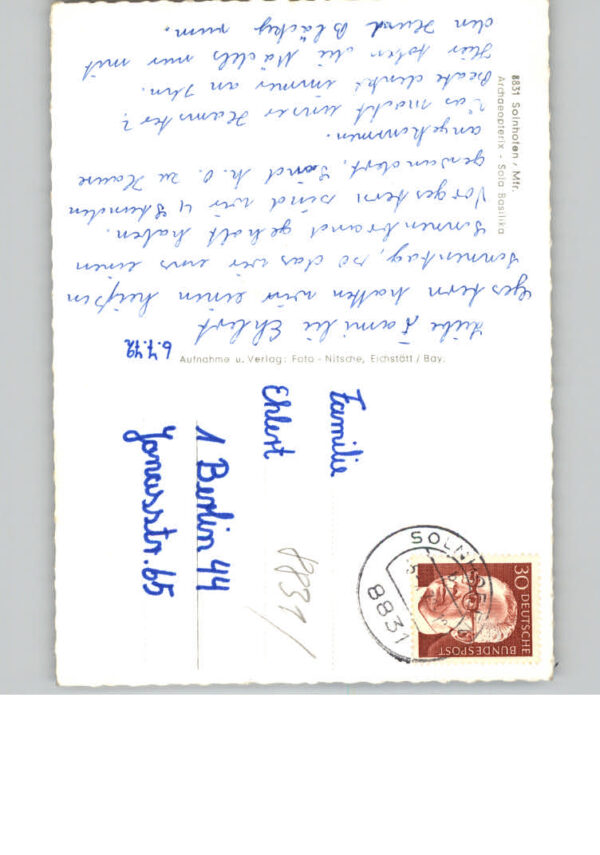 8831 Solnhofen / Mfr.
Archaeopterix - Sola Basilika
Aufnahme u. Verlag: Foto - Nitsche, Eichstätt / Bay.
6.7.72
Liebe Familie Ehlert
Gestern hatten wir einen heißen
Sonnentag, so das wir uns einen
Sonnenbrand geholt haben.
Vorgestern sind wir 4 Stunden
gewandert, sind k.o. zu Hause
angekommen.
Was macht unser Hamster?
Beate denkt immer an Ihn.
Hier toben die Mädels nur mit
den Hund Bläcky rum.
Familie
Ehlert
1 Berlin 44
Jonasstr. 65
8831/
SOLNHOFEN
8831
30 DEUTSCHE
BUNDESPOST